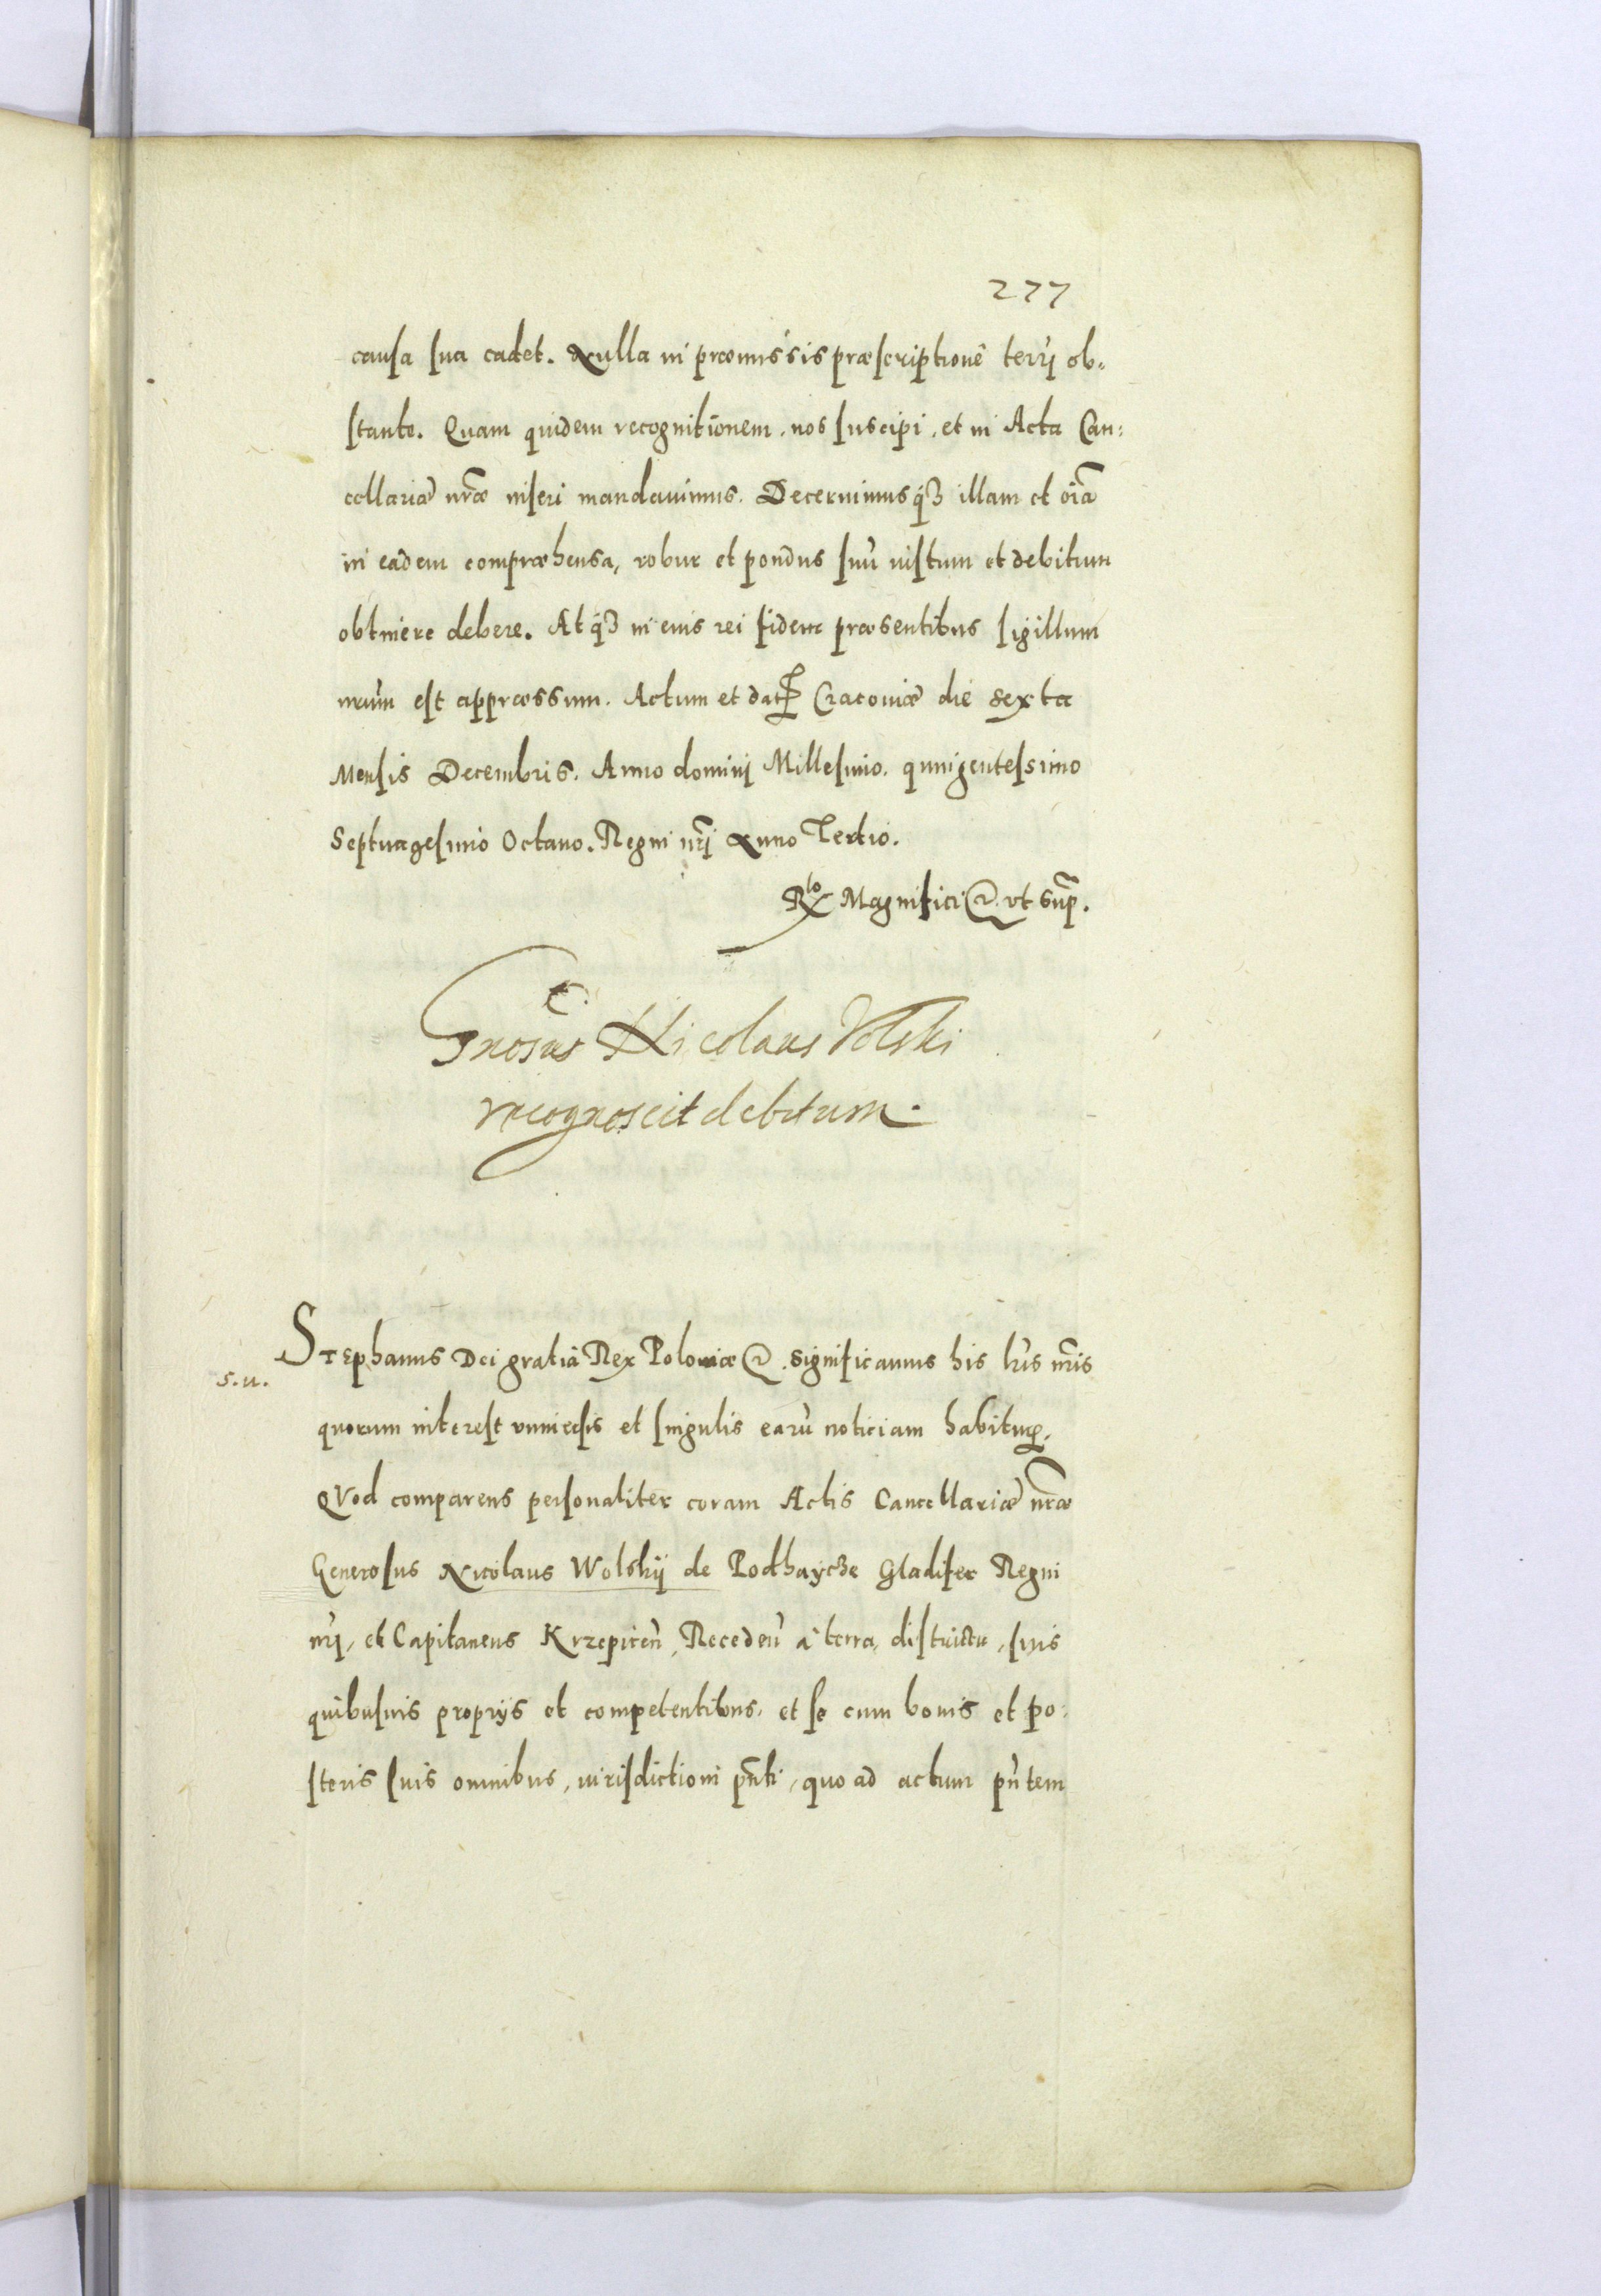 277
causa sua cadet. Nulla in præmissis præscriptionē terrj ob-
stante. Quam quidem recognitionem, nos suscipi, et in Acta Can:
cellariæ nr̄æ inseri mandavimus. Decernimusq3 illam et oīa
in eadem compræhensa, robur et pondus suū iustum et debitum
obtinere debere. Atq3 in eius rei fidem præsentibus sigillum
nrūm est appræssum. Actum et dat Cracoviæ die sexta
Mensis Decembris. Anno dominj Millesimo. quingentessimo
Septuagesimo Octauo. Regni nr̄j Anno Tertio.
Rto Magnifici &. vt Sup̄.
Gnosus Nicolaus Volski
recognoscit debitum.
Stephanus Dei gratia Rex Poloniæ &. significamus his lr̄is nr̄is
s.u.
quorum interest vniuersis et singulis earū noticiam habitur.
QVod comparens personaliter coram Actis Cancellariæ nr̄æ
Generosus Nicolaus Wolskij de Podhaycze Gladifer Regni
nr̄j, et Capitaneus Krzepicen̄, Receden̄ à terra, districtu, suis
quibusuis proprijs et competentibus, et se cum bonis et po-
steris suis omnibus, iurisdictioni pn̄ti, quo ad actum pn̄tem